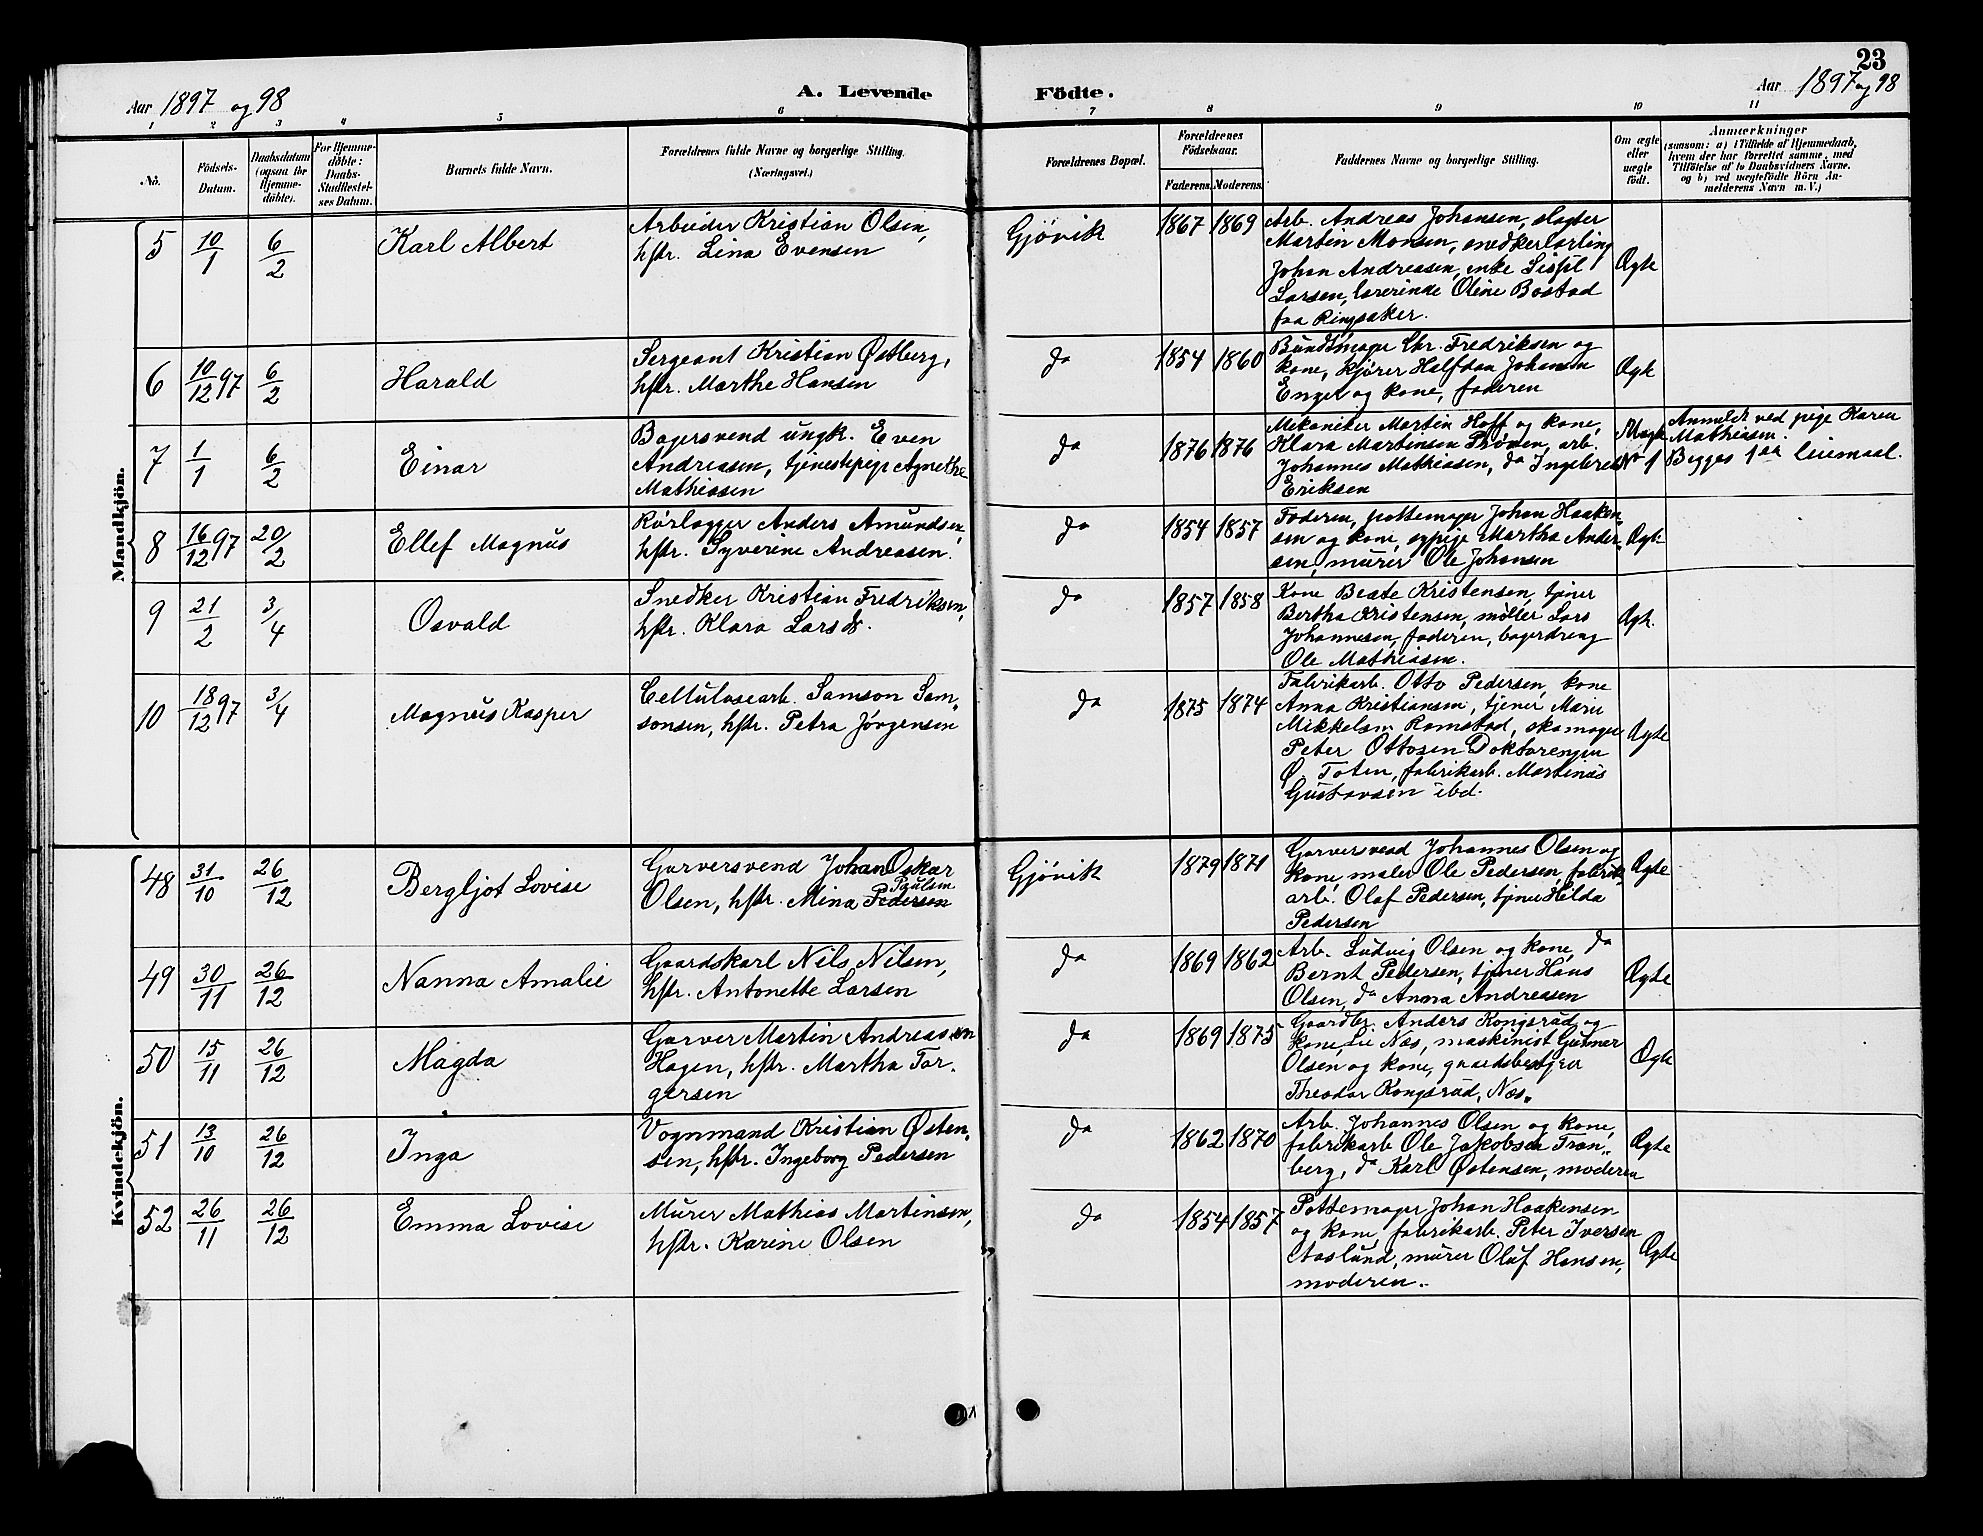 23
Aar 1897 og 98
A. Levende Födte.
Aar 1897 og 98
1 2 3 4 5 6 7 8 9 10 11
No.
Födsels-Datum.
Daabsdatum (ogsaa for Hjemme-döbte).
For Hjemme-döbte: Daabs-Stadfæstel-ses Datum.
Barnets fulde Navn.
Forældrenes fulde Navne og borgerlige Stilling.
(Næringsvei.)
Forældrenes Bopæl.
Forældrenes Födselsaar.
Faderens. Moderens.
Faddernes Navne og borgerlige Stilling.
Om ægte eller uægte födt.
Anmærkninger
(saasom: a) i Tilfælde af Hjemmedaab,
hvem der har forrettet samme, med
Tilföielse af to Daabsvidners Navne.
og b) ved uægtefödte Börn An-
melderens Navn m. V.)
Mandkjön.
5 10/1 6/2 Karl Albert
Arbeider Kristian Olsen,
hstr. Lina Evensen
Gjövik 1867 1869
Arb. Andreas Johansen, slagter
Martin Monsen, snedkerlærling
Johan Andreasen, enke Sissel
Larsen, lærerinde Oline Bostad
fra Ringsaker.
Ægte
6 10/12 97 6/2 Harald
Sergeant Kristian Østberg,
hstr. Marthe Hansen
da 1854 1860
Bundtmager Chr. Fredriksen og
kone, kjörer Halfdan Johansen
Engel og kone, faderen
Ægte
7 1/1 6/2 Einar
Bagersvend ungk. Even
Andreasen, tjenestepige Agnethe
Mathiasen
da 1876 1876
Mekaniker Martin Hoff og kone,
Klara Martinsen Prøven, arb.
Johannes Mathiasen, da Ingebret
Eriksen
Uægte
No 1
Anmeldt ved pige Karen
Mathiasen.
Begges 1ste leiemaal.
8 16/12 97 20/2 Ellef Magnus
Rörlægger Anders Amundsen,
hstr. Syverine Andreasen.
da 1854 1857
Faderen, pottemager Johan Haaken-
sen og kone, sypige Martha Ander-
sen, murer Ole Johansen
Ægte
9 21/2 3/4 Osvald
Snedker Kristian Fredriksen,
hstr. Klara Larsd.
da 1857 1858
Kone Beate Kristensen, tjener
Bertha Kristensen, møller Lars
Johannesen, faderen, bagerdreng
Ole Mathiasen.
Ægte.
10 18/12 97 3/4 Magnus Kasper
Cellulosearb. Samson Sam-
sonsen, hstr. Petra Jörgensen
da 1875 1874
Fabrikarb. Otto Pedersen, kone
Anna Kristiansen, tjener Maren
Mikkelsen Ramstad, skomager
Peter Ottosen Doktorengen
Ø. Toten, fabrikarb. Martinus
Gustavsen ibd.
Ægte
Kvindekjön.
48 31/10 26/12 Bergljot Lovise
Garversvend Johan Oskar
Paulsen
Olsen, hstr. Mina Pedersen
Gjövik 1879 1871
Garversvend Johannes Olsen og
kone, maler Ole Pedersen, fabrik-
arb. Olaf Pedersen, tjener Hilda
Pedersen
Ægte
49 30/11 26/12 Nanna Amalie
Gaardskarl Nils Nilsen,
hstr. Antonette Larsen
da 1869 1862
Arb. Ludvig Olsen og kone, da
Bernt Pedersen, tjener Hans
Olsen, da Anna Andreasen
Ægte
50 15/11 26/12 Magda
Garver Martin Andreassen
Hagen, hstr. Martha Tor-
gersen
da 1869 1875
Gaardbr. Anders Kongsrud og
kone, Lie Næs, maskinist Gutmer
Olsen og kone, gaardbestyrer
Theodor Kongsrud, Næs.
Ægte
51 13/10 26/12 Inga
Vognmand Kristian Østen-
sen, hstr. Ingeborg Pedersen
da 1862 1870
Arb. Johannes Olsen og kone,
fabrikarb. Ole Jakobsen Tran-
berg, da Karl Østensen, moderen
Ægte
52 26/11 26/12 Emma Lovise
Murer Mathias Martinsen,
hstr. Karine Olsen
da 1854 1857
Pottemager Johan Haakensen
og kone, fabrikarb. Peter Iversen
Aaslund, murer Oluf Hansen,
moderen.
Ægte